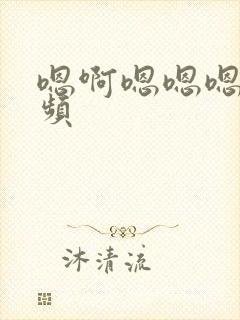 嗯啊嗯嗯嗯
頻
沐清流